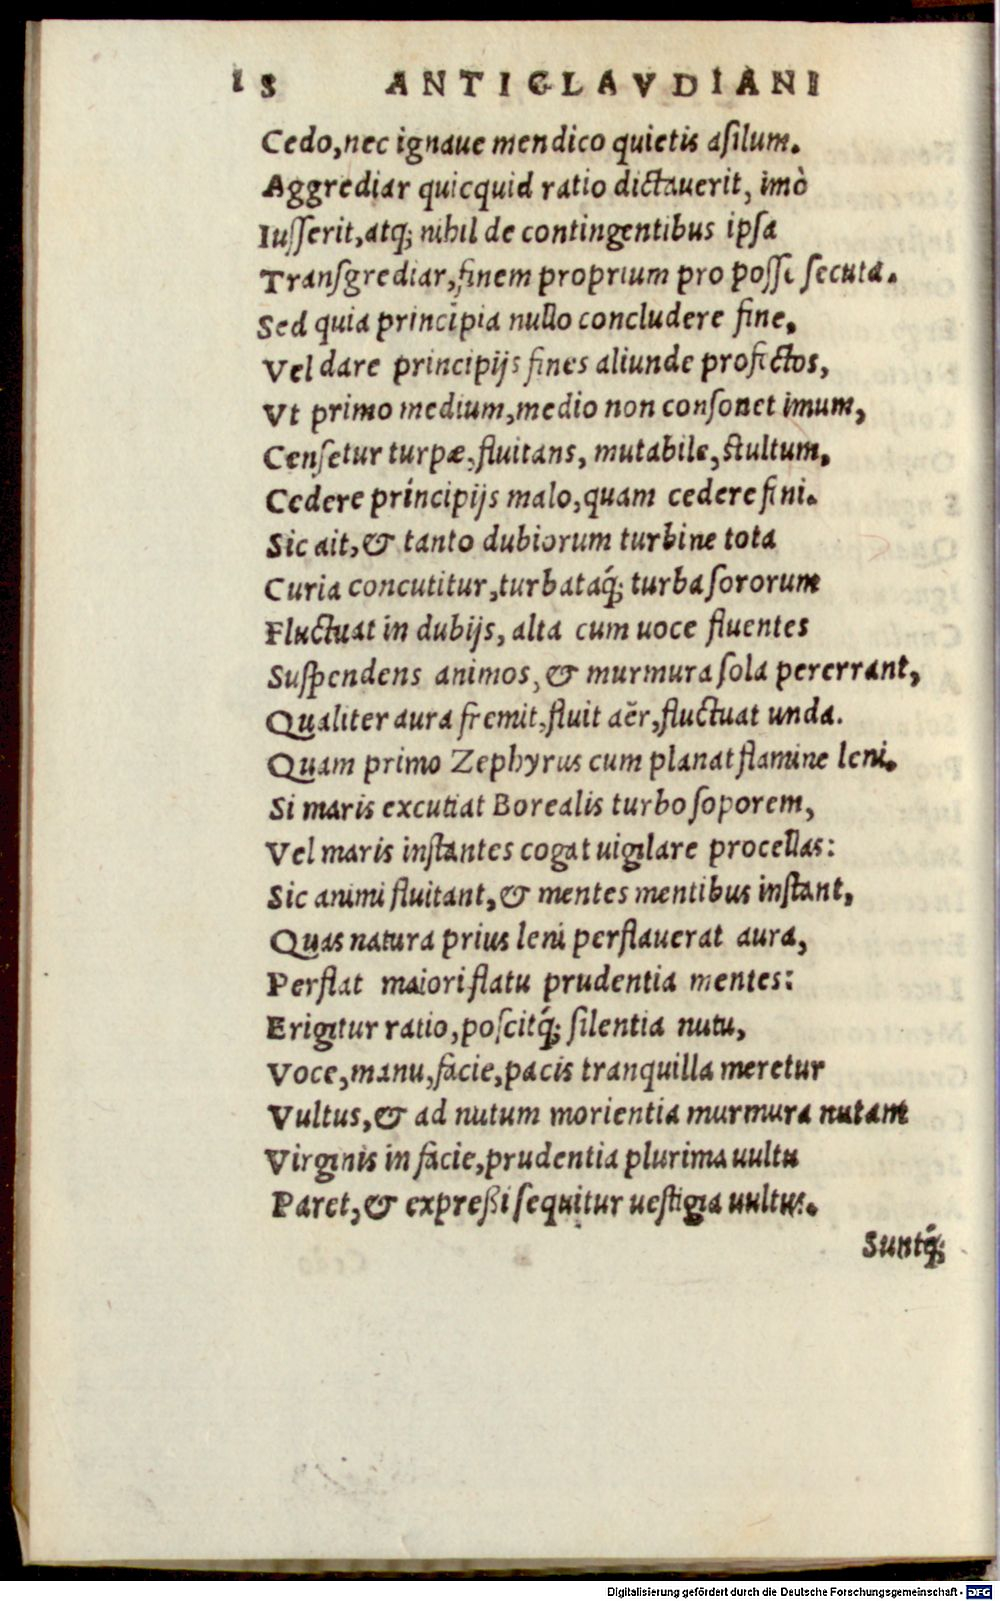 18 ANTICLAVDIANI
Cedo, nec ignaue mendico quietis asilum.
Aggrediar quicquid ratio dictauerit, imò
Iusserit, atq; nihil de contingentibus ipsa
Transgrediar, finem proprium pro posse secuta.
Sed quia principia nullo concludere fine,
Vel dare principijs fines aliunde profectos,
Vt primo medium, medio non consonet imum,
Censetur turpæ, fluitans, mutabile, stultum,
Cedere príncipijs malo, quam cedere fini.
Sic ait, & tanto dubiorum turbine tota
Curia concutitur, turbataq́; turba sororum
Fluctuat in dubijs, alta cum uoce fluentes
Suspendens animos, & murmura sola pererrant,
Qualiter aura fremit, fluit aër, fluctuat unda.
Quam primo Zephyrus cum planat flamine leni.
Si maris excutiat Borealis turbo soporem,
Vel maris instantes cogat uigilare procellas:
Sic animi fluitant, & mentes mentibus instant,
Quas natura prius leni perflauerat aura,
Perflat maiori flatu prudentia mentes:
Erigitur ratio, poscitq́; silentia nutu,
Voce, manu, facie, pacis tranquilla meretur
Vultus, & ad nutum morientia murmura nutant
Virginis in facie, prudentia plurima uultu
Paret, & expreßi sequitur uestigia uultus.
Suntq́;
Digitalisierung gefördert durch die Deutsche Forschungsgemeinschaft - DFG